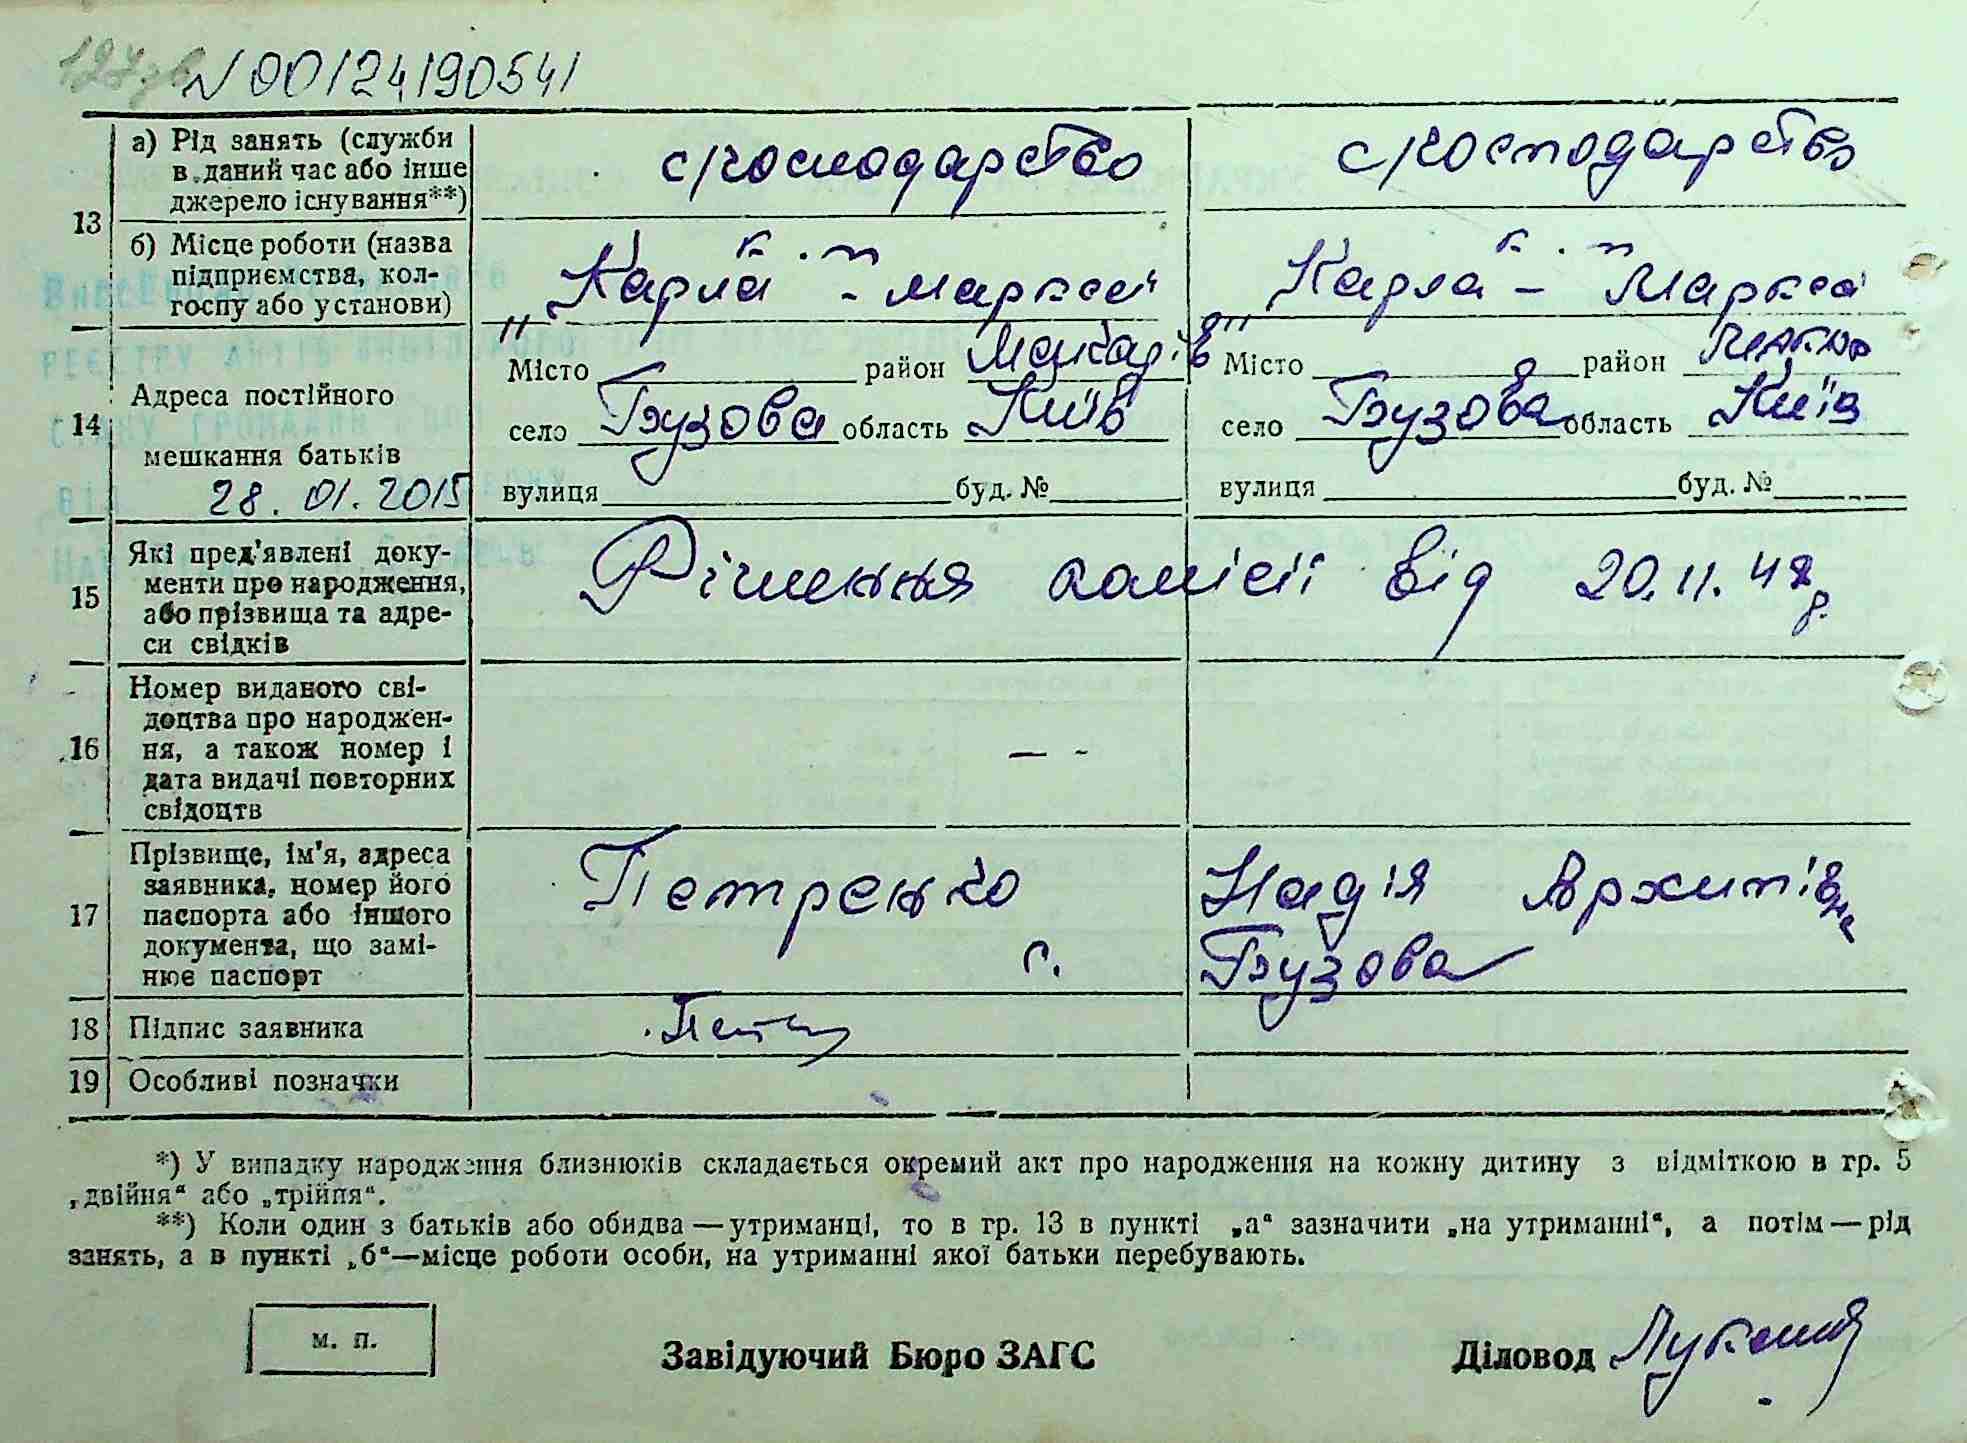 N 00124190541
13 а) Рід занять (служби в даний час або інше джерело існування**) с/господарство с/господарство
б) Місце роботи (назва підприємства, колгоспу або установи) к-п „Карла - Маркса" к-п „Карла - Маркса
14 Адреса постійного мешкання батьків
Місто район Макарів Місто район
село Бузова область Київ село Бузова область Київ
28.01.2015 вулиця буд. № вулиця буд. №
15 Які пред'явлені документи про народження, або прізвища та адреси свідків Рішення комісії від 20.11.48 р.
16 Номер виданого свідоцтва про народження, а також номер і дата видачі повторних свідоцтв — -
17 Прізвище, ім'я, адреса заявника, номер його паспорта або іншого документа, що замінює паспорт Петренко Надія Архипівна
с. Бузова
18 Підпис заявника
19 Особливі позначки
*) У випадку народження близнюків складається окремий акт про народження на кожну дитину з відміткою в гр. 5
„двійня“ або „трійня“.
**) Коли один з батьків або обидва — утриманці, то в гр. 13 в пункті „а“ зазначити „на утриманні“, а потім — рід
занять, а в пункті „б“ — місце роботи особи, на утриманні якої батьки перебувають.
м. п. Завідуючий Бюро ЗАГС Діловод